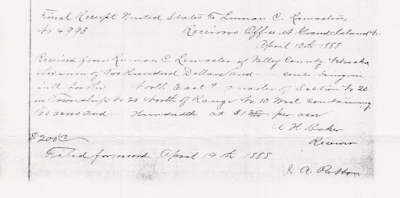 Final Receipt United States To Lyman C. Lamaster
No 4993 Receivers Office at Grand Island N.
April 10th 1888
Received from Lyman C. Lamaster of Valley County Nebraska
the sum of Two Hundred Dollars and cents being in
full for the North East quarter of Section No 20
in Township No 20 North of Range No 10 West containing
160 acres and Hundredth at $1 25/100 per acre
A H Baker
$200.00 Receiver
Filed for record April 19th 1888
J. A. Patton